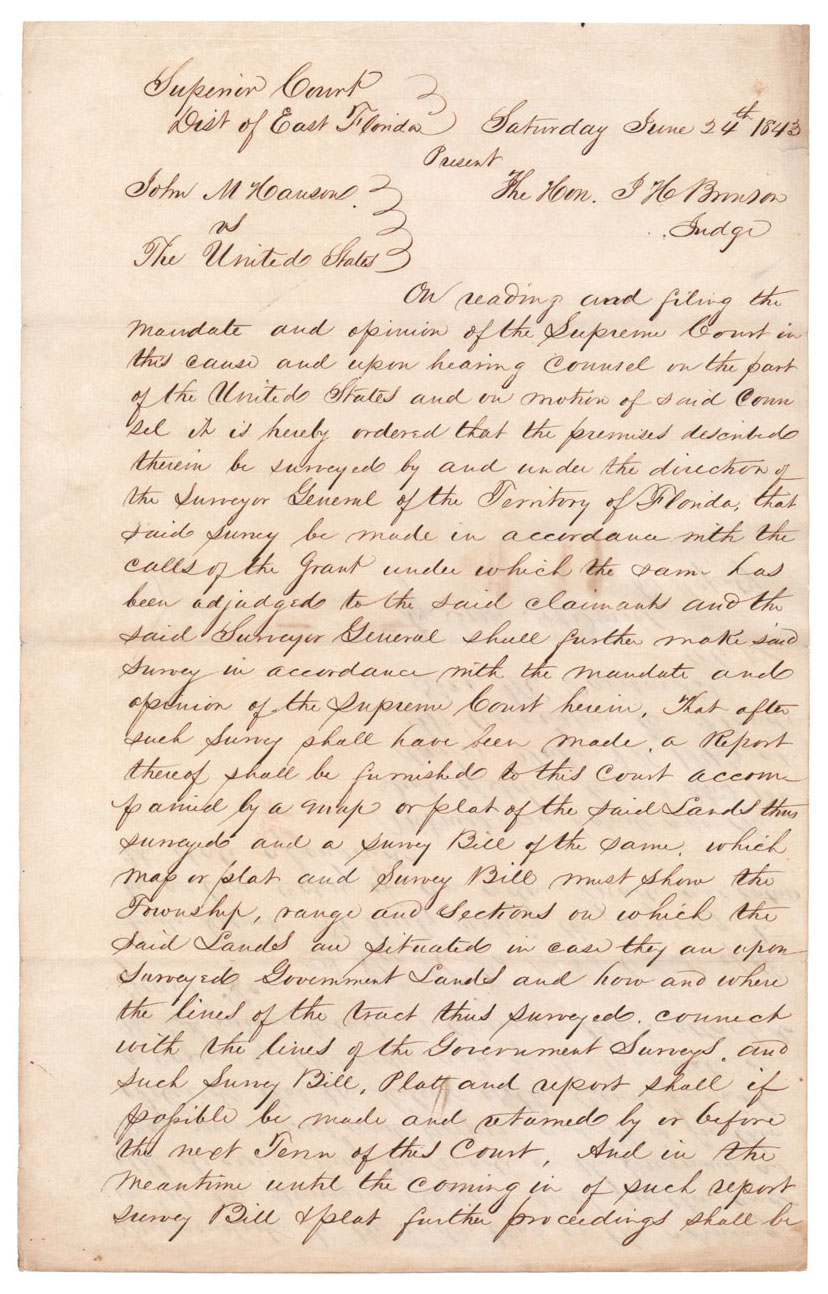 Superior Court
Dist of East Florida Saturday June 24th 1843
Present
John M Hanson The Hon. I H Bronson
vs Judge
The United States
On reading and filing the
mandate and opinion of the Supreme Court in
this cause and upon hearing counsel on the part
of the United States and on motion of said Coun
sel it is hereby ordered that the premises described
therein be surveyed by and under the direction of
the Surveyor General of the Territory of Florida, that
said survey be made in accordance with the
calls of the Grant under which the same has
been adjudged to the said claimants and the
said Surveyor General shall further make said
survey in accordance with the mandate and
opinion of the Supreme Court herein, That after
such Survey shall have been made, a Report
thereof shall be furnished to this Court accom
panied by a map or plat of the said Lands thus
surveyed and a survey Bill of the same, which
map or plat and Survey Bill must show the
Township, range and Sections on which the
said Lands are situated in case they are upon
surveyed Government Lands and how and where
the lines of the tract thus surveyed. connect
with the lines of the Government Surveys, and
such Survey Bill, Platt and report shall if
possible be made and returned by or before
the next Term of this Court, And in the
meantime until the coming in of such report
survey Bill & plat further proceedings shall be